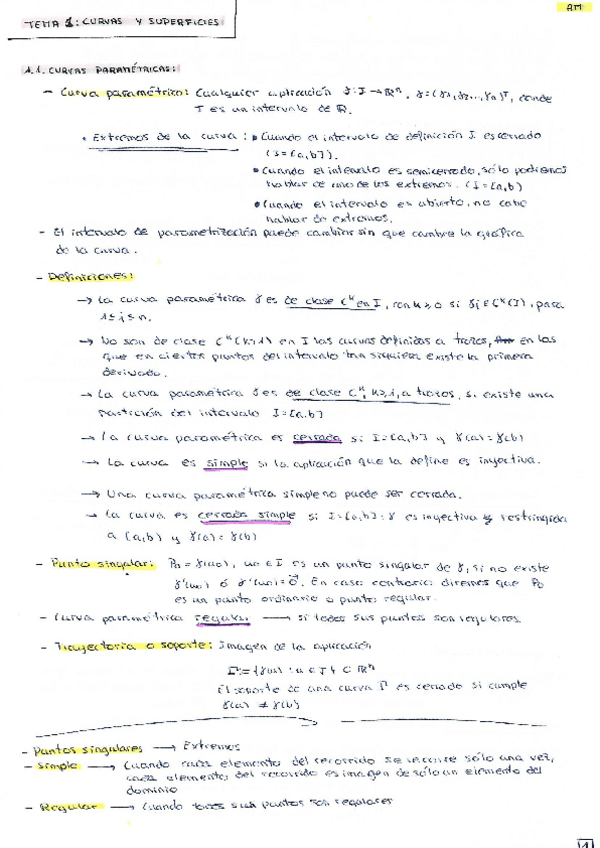 AM
TEMA 1: CURVAS Y SUPERFICIES
1.1. CURVAS PARAMÉTRICAS:
- Curva paramétrica: Cualquier aplicación γ: I → ℝⁿ, γ = (γ1, γ2..., γn)ᵀ, donde
I es un intervalo de ℝ.
• Extremos de la curva: • Cuando el intervalo de definición I es cerrado
(I = [a,b]).
• Cuando el intervalo es semicerrado, sólo podremos
hablar de uno de los extremos. (I = [a,b)
• Cuando el intervalo es abierto, no cabe
hablar de extremos.
- El intervalo de parametrización puede cambiar sin que cambie la gráfica
de la curva.
- Definiciones:
→ La curva paramétrica γ es de clase Cᵏ en I, con k ≥ 0 si γj ∈ Cᵏ(I), para
1 ≤ j ≤ n.
→ No son de clase Cᵏ (k ≥ 1) en I las curvas definidas a trozos, en las
que en ciertos puntos del intervalo tan siquiera existe la primera
derivada.
→ La curva paramétrica γ es de clase Cᵏ, k ≥ 1, a trozos, si existe una
partición del intervalo I = [a,b]
→ La curva paramétrica es cerrada si I = [a,b] y γ(a) = γ(b)
→ La curva es simple si la aplicación que la define es inyectiva.
→ Una curva paramétrica simple no puede ser cerrada.
→ La curva es cerrada simple si I = [a,b]: γ es inyectiva y restringida
a (a,b) y γ(a) = γ(b)
- Punto singular: P0 = γ(u0), u0 ∈ I es un punto singular de γ, si no existe
γ'(u0) ó γ'(u0) = 0⃗. En caso contrario diremos que P0
es un punto ordinario o punto regular.
- Curva paramétrica regular → si todos sus puntos son regulares.
- Trayectoria o soporte: Imagen de la aplicación
Γ := {γ(u) : u ∈ I} ⊂ ℝⁿ
El soporte de una curva Γ es cerrado si cumple
γ(a) ≠ γ(b)
- Puntos singulares → Extremos
- Simple → Cuando cada elemento del recorrido se recorre sólo una vez,
cada elemento del recorrido es imagen de sólo un elemento del
dominio
- Regular → Cuando todos sus puntos son regulares
1